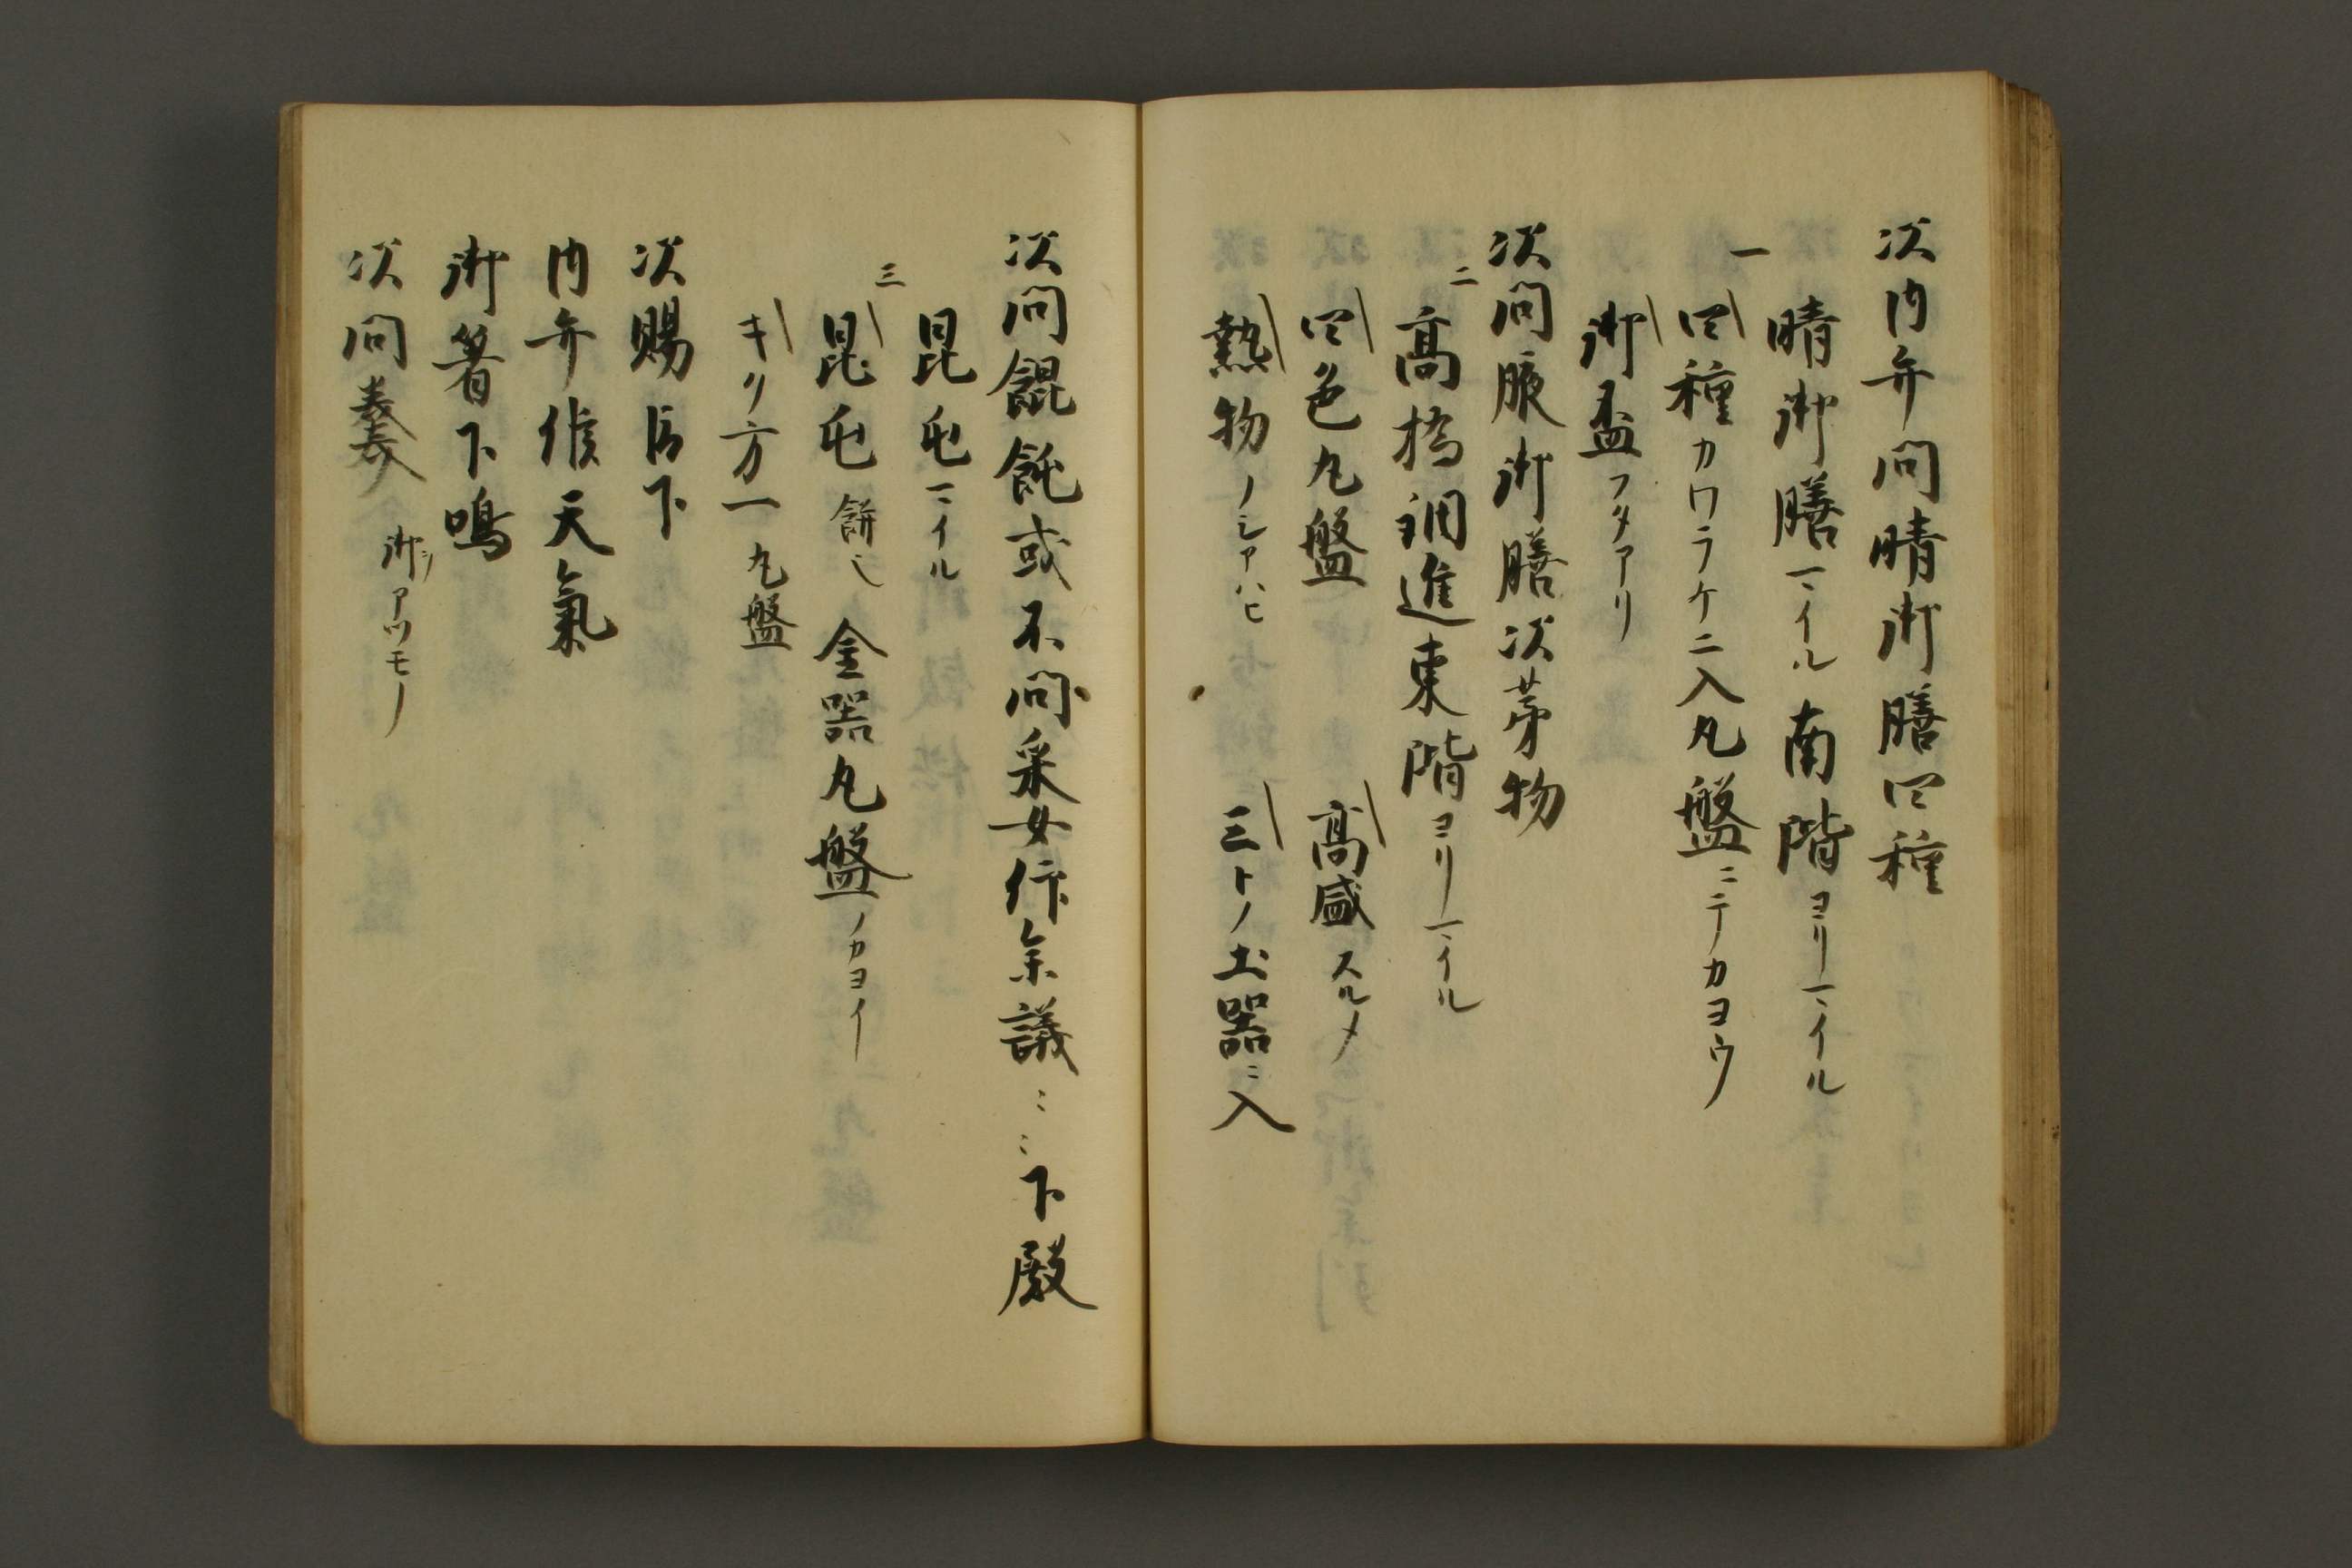 次内弁問晴御膳四種
一 晴御膳マイル南階ヨリマイル
四種カワラケニ入丸盤ニテカヨウ
御盃フタアリ
次問腋御膳次第物
二 高橋調進東階ヨリマイル
四色丸盤 高盛スルメ
熱物ノシアハヒ 三トノ土器ニ入
次問餛飩或不問采女仰参議ミミ下殿
昆屯マイル
三 昆屯餅也 金器丸盤ノカヨイ
キリ方一丸盤
次賜臣下
内弁候天氣
御箸下鳴
次問羹 御シアツモノ